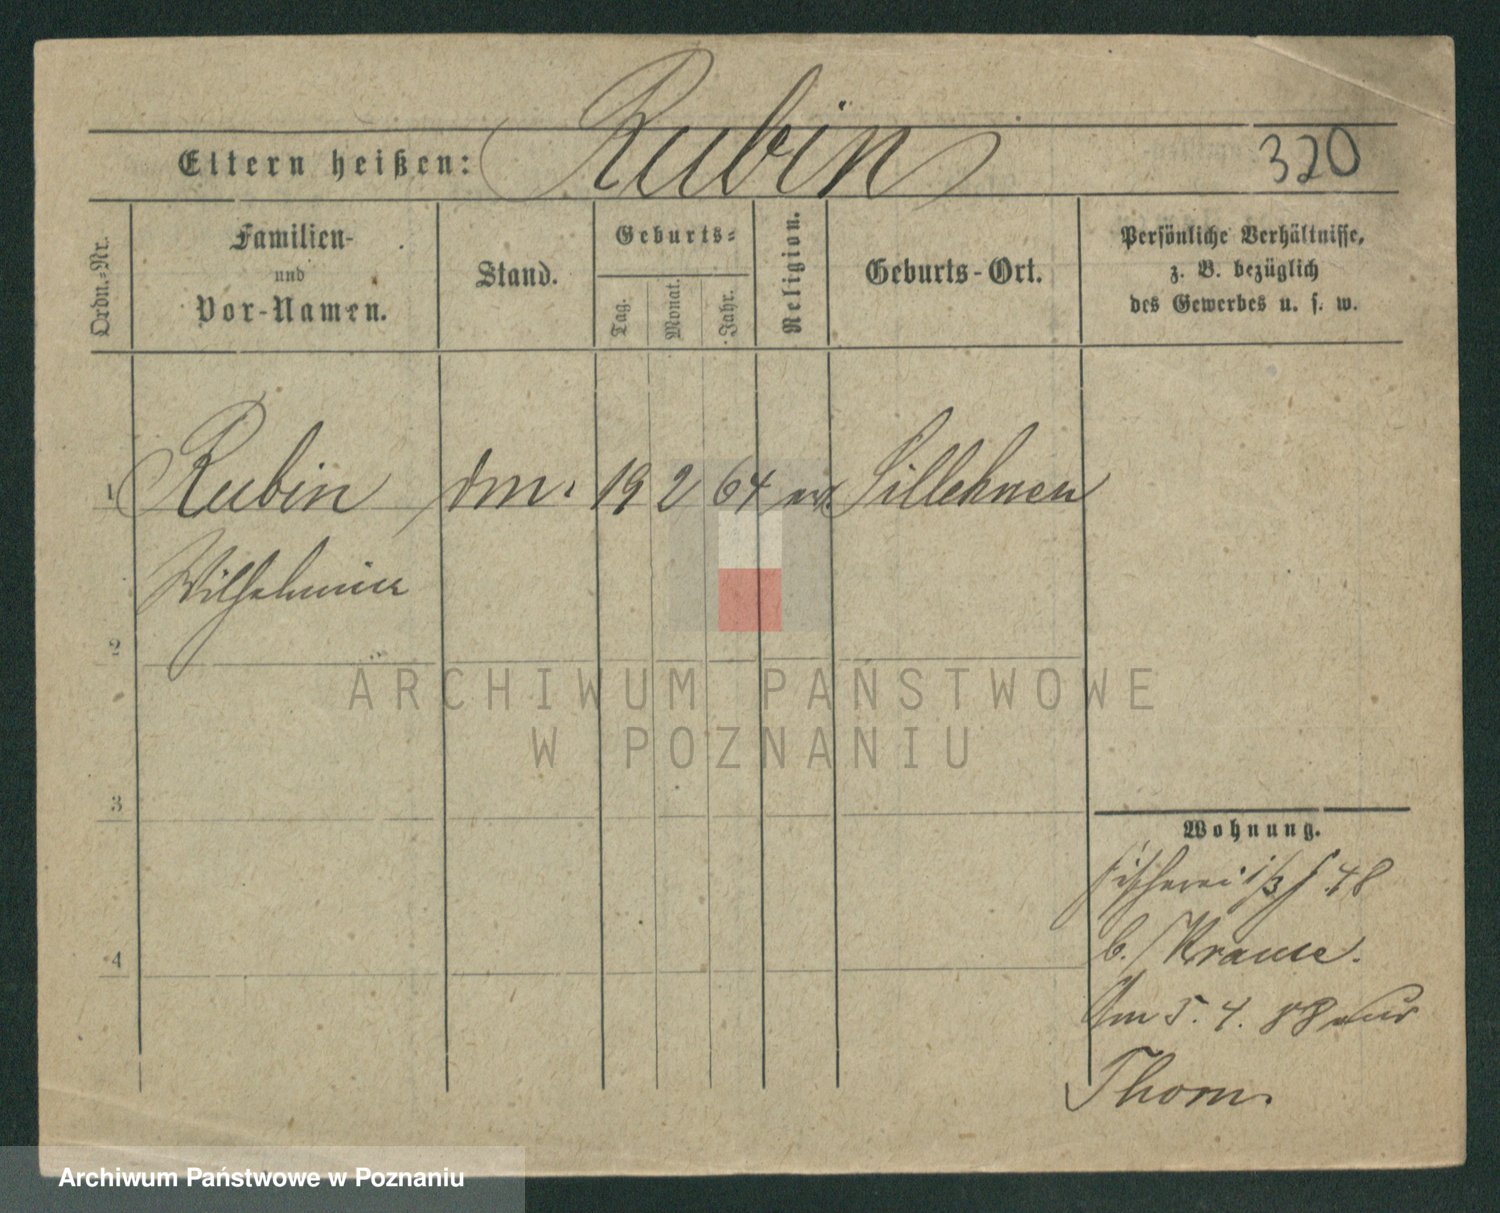 Rubin
Eltern heißen:
320
Ordn.-Nr.
Familien-
und
Vor-Namen.
Stand.
Geburts-
Tag.
Monat.
Jahr.
Religion.
Geburts-Ort.
Persönliche Verhältnisse,
z. B. bezüglich
des Gewerbes u. s. w.
1 Rubin 19 2 64 Sillehnen
Wilhelmine
2
3
4
ARCHIWUM PAŃSTWOWE
W POZNANIU
Wohnung.
Fischerei 48
b./Krause.
5. 4. 88
Thorn.
Archiwum Państwowe w Poznaniu